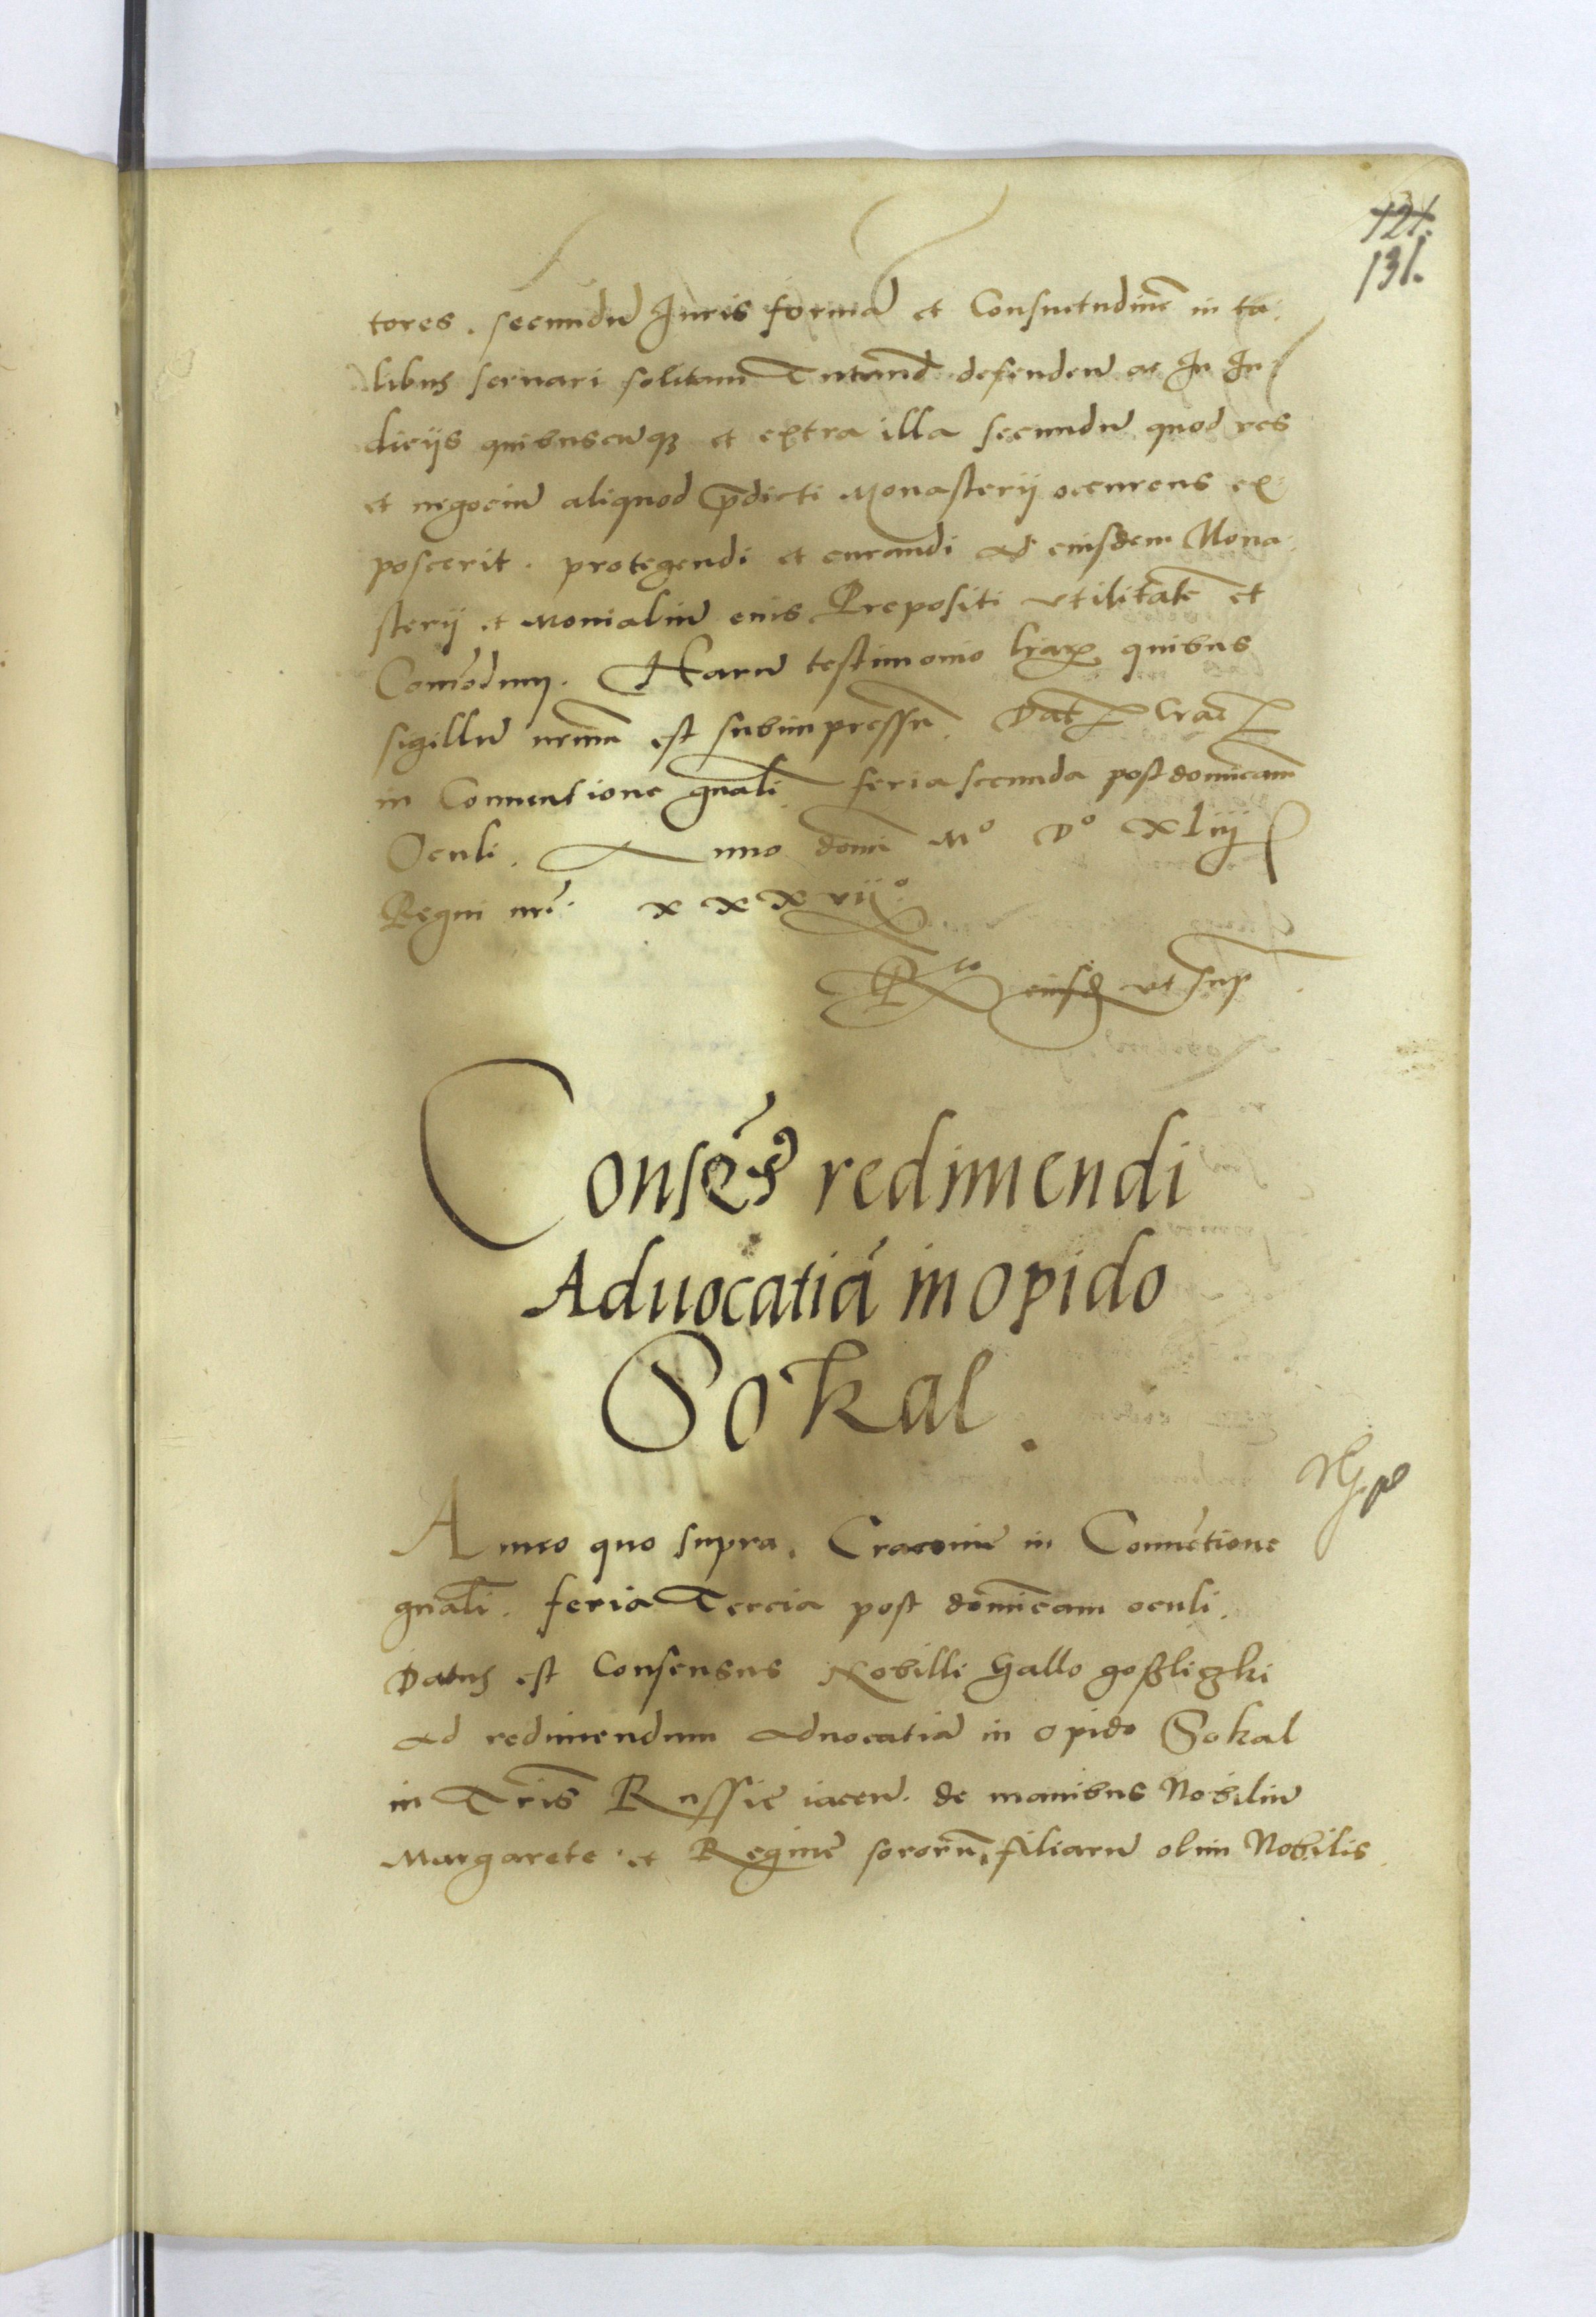 121.
131.
tores. secundū Juris formā et Consuetudinē in ta-
libus seruari solitam Tutand defendeñ ac In Iu-
dicijs quibuscūqꝫ et extra illa secundū quod res
et negociū aliquod p̄dicti Monasterij occurens ex-
poscerit. protegendi et curandi ad eiusdem Mona-
sterij et Monialiū eius Prepositi vtilitatē et
Com̄odum. Harū testimonio l̃rarꝫ quibus
sigillū nrm̃ est subimpressū. Dat̃ Crac̃
in Conuentione gñali feria secunda post domīcam
Oculi. Anno domī Mº Dº xliij
Regni nrĩ xxxviiº
R^to eiusd ut sup
Consēs redimendi
Aduocatiā in opido
Sokal.
Anno quo supra, Cracouie in Conuētione
gñali. feria Tercia post domīcam oculi.
Datus est Consensus Nobilli Gallo goßliczki
ad redimendum aduocatiā in opido Sokal
in Tr̃is Russie iaceñ. de manibus Nobiliū
Margarete et Regine sororū, filiarū olim Nobilis